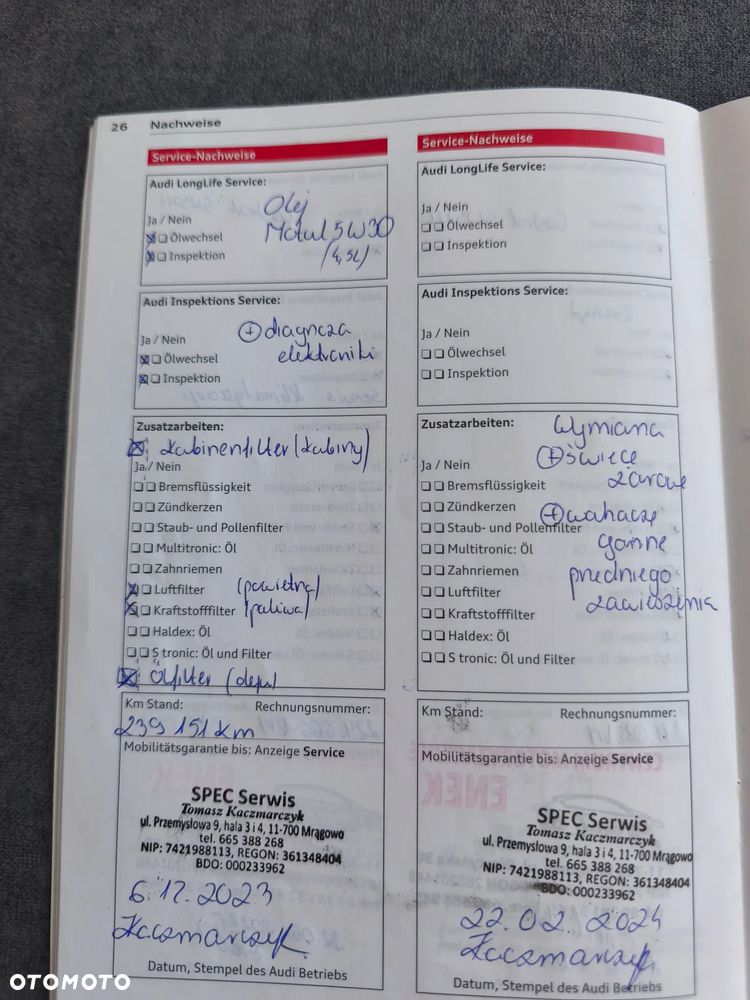 26 Nachweise
Service-Nachweise
Audi LongLife Service:
Olej
Ja / Nein
Motul 5W30
Ölwechsel
(4,5L)
Inspektion
Audi Inspektions Service:
Ja / Nein
+ diagnoza
elektroniki
Ölwechsel
Inspektion
Zusatzarbeiten:
Kabinenfilter (kabiny)
Ja / Nein
Bremsflüssigkeit
Zündkerzen
Staub- und Pollenfilter
Multitronic: Öl
Zahnriemen
Luftfilter (powietrza)
Kraftstofffilter (paliwa)
Haldex: Öl
S tronic: Öl und Filter
Ölfilter
Km Stand: Rechnungsnummer:
239 151 km
Mobilitätsgarantie bis: Anzeige Service
SPEC Serwis
Tomasz Kaczmarczyk
ul. Przemysłowa 9, hala 3 i 4, 11-700 Mrągowo
tel. 665 388 268
NIP: 7421988113, REGON: 361348404
BDO: 000233962
6.12.2023
Kaczmarczyk
Datum, Stempel des Audi Betriebs
Service-Nachweise
Audi LongLife Service:
Ja / Nein
Ölwechsel
Inspektion
Audi Inspektions Service:
Ja / Nein
Ölwechsel
Inspektion
Zusatzarbeiten:
Wymiana
Ja / Nein
+ świece
żarowe
Bremsflüssigkeit
Zündkerzen
+ wahacze
Staub- und Pollenfilter
górne
Multitronic: Öl
przedniego
Zahnriemen
zawieszenia
Luftfilter
Kraftstofffilter
Haldex: Öl
S tronic: Öl und Filter
Km Stand: Rechnungsnummer:
Mobilitätsgarantie bis: Anzeige Service
SPEC Serwis
Tomasz Kaczmarczyk
ul. Przemysłowa 9, hala 3 i 4, 11-700 Mrągowo
tel. 665 388 268
NIP: 7421988113, REGON: 361348404
BDO: 000233962
22.02.2024
Kaczmarczyk
Datum, Stempel des Audi Betriebs
OTOMOTO